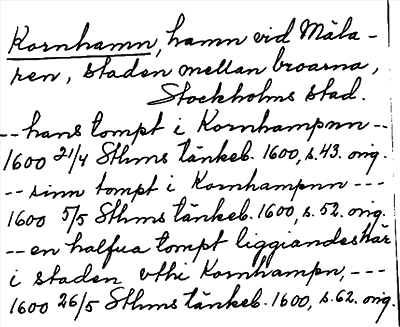 Kornhamn, hamn vid Mäla-
ren, staden mellan broarna,
Stockholms stad.
-- hans tompt i Kornhampnn --
1600 21/4 Sthms tänkeb. 1600, s.43. orig.
-- sinn tompt i Kornhampnn ---
1600 5/5 Sthms tänkeb. 1600, s.52. orig.
-- en halfua tompt liggiandes här
i staden vthi Kornhampn, ---
1600 26/5 Sthms tänkeb. 1600, s.62. orig.